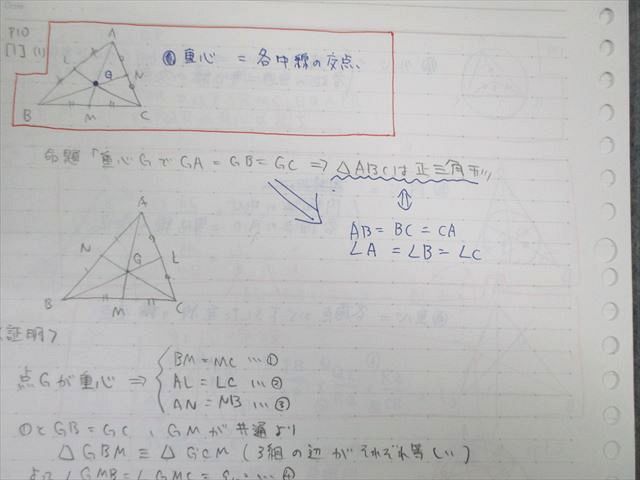 P10
[1] (1)
A
L
G
N
B
M
C
◎重心 = 各中線の交点.
命題「重心GでGA=GB=GC ⇒ △ABCは正三角形」
⇕
AB=BC=CA
∠A=∠B=∠C
A
N
L
G
B
M
C
〈証明〉
点Gが重心 ⇒ { BM=MC …①
AL=LC …②
AN=NB …③
①とGB=GC、GMが共通より
△GBM≡△GCM (3組の辺がそれぞれ等しい)
よって∠GMB=∠GMC=90° …④